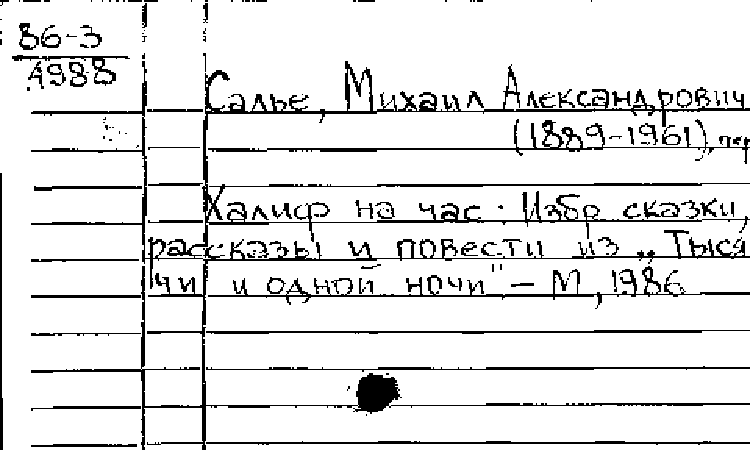 86-3
4988
Салье, Михаил Александрович
(1889-1961), пер
Халиф на час: Избр сказки,
рассказы и повести из „Тыся
чи и одной ночи" – М, 1986